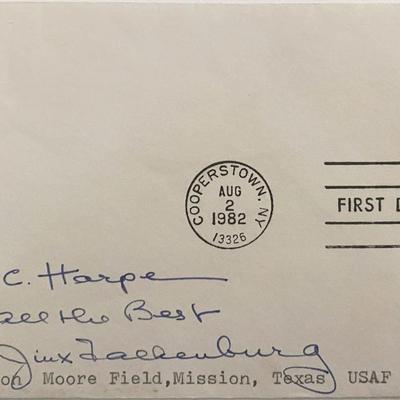 COOPERSTOWN, NY
AUG
2
1982
13326
FIRST D
C. Harpe
all the Best
Jinx Falkenburg
on Moore Field,Mission, Texas USAF